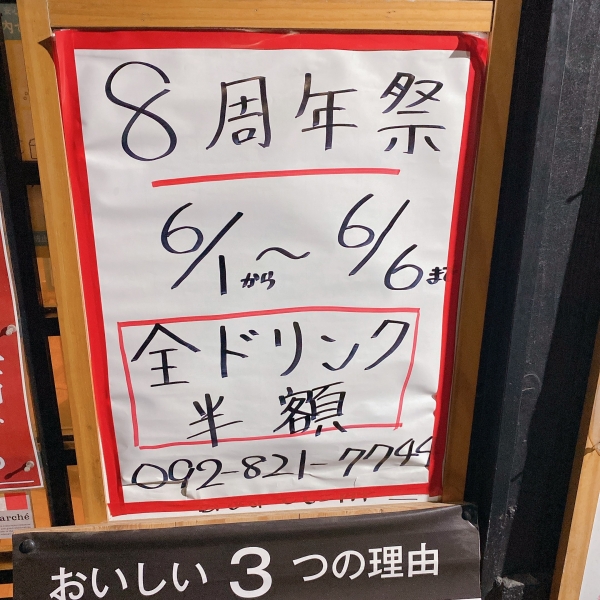 8周年祭
6/1から〜6/6まで
全ドリンク
半額
092-821-7744
おいしい3つの理由
arché